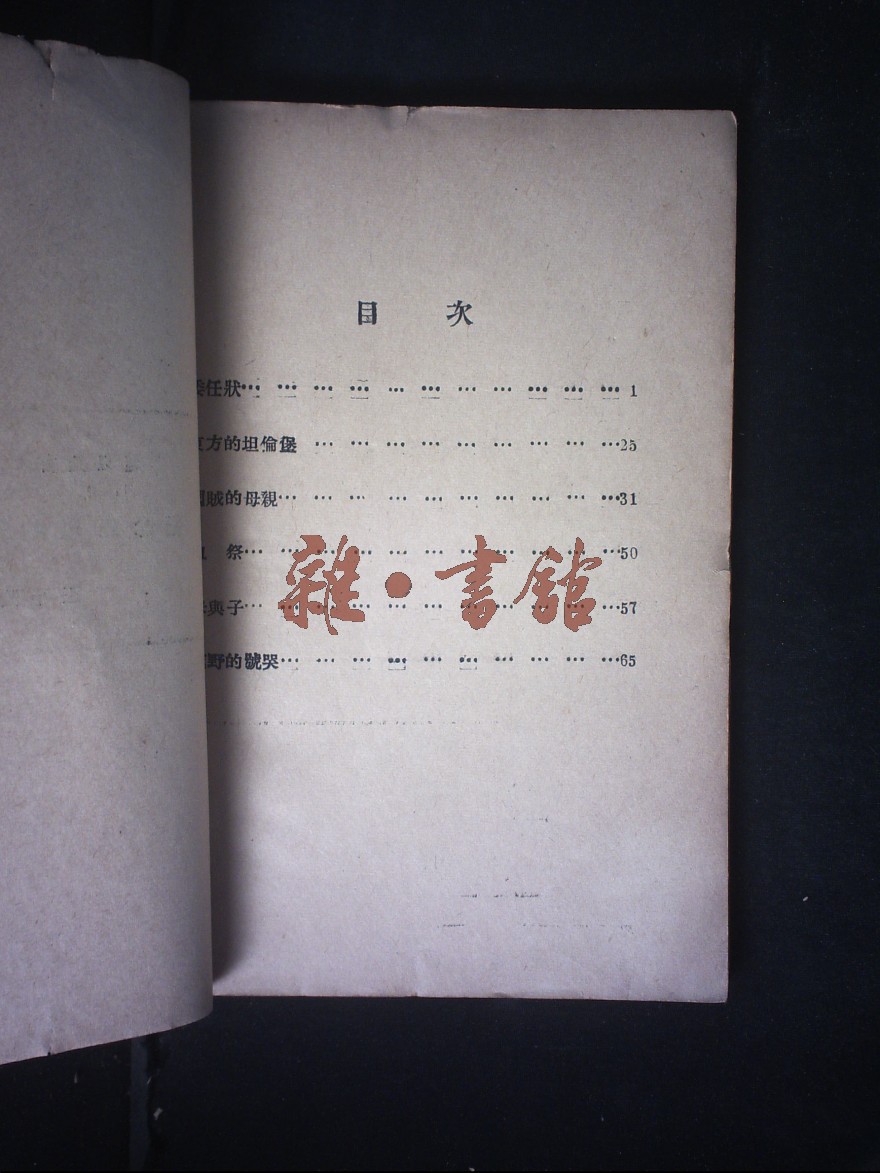 目 次
委任狀… … … … … … … … … … …1
東方的坦倫堡 … … … … … … … … …25
賊的母親… … … … … … … … … …31
祭… … … … … … … … … … …50
與子… … … … … … … … … … …57
野的號哭… … … … … … … … … …65
雜·書館